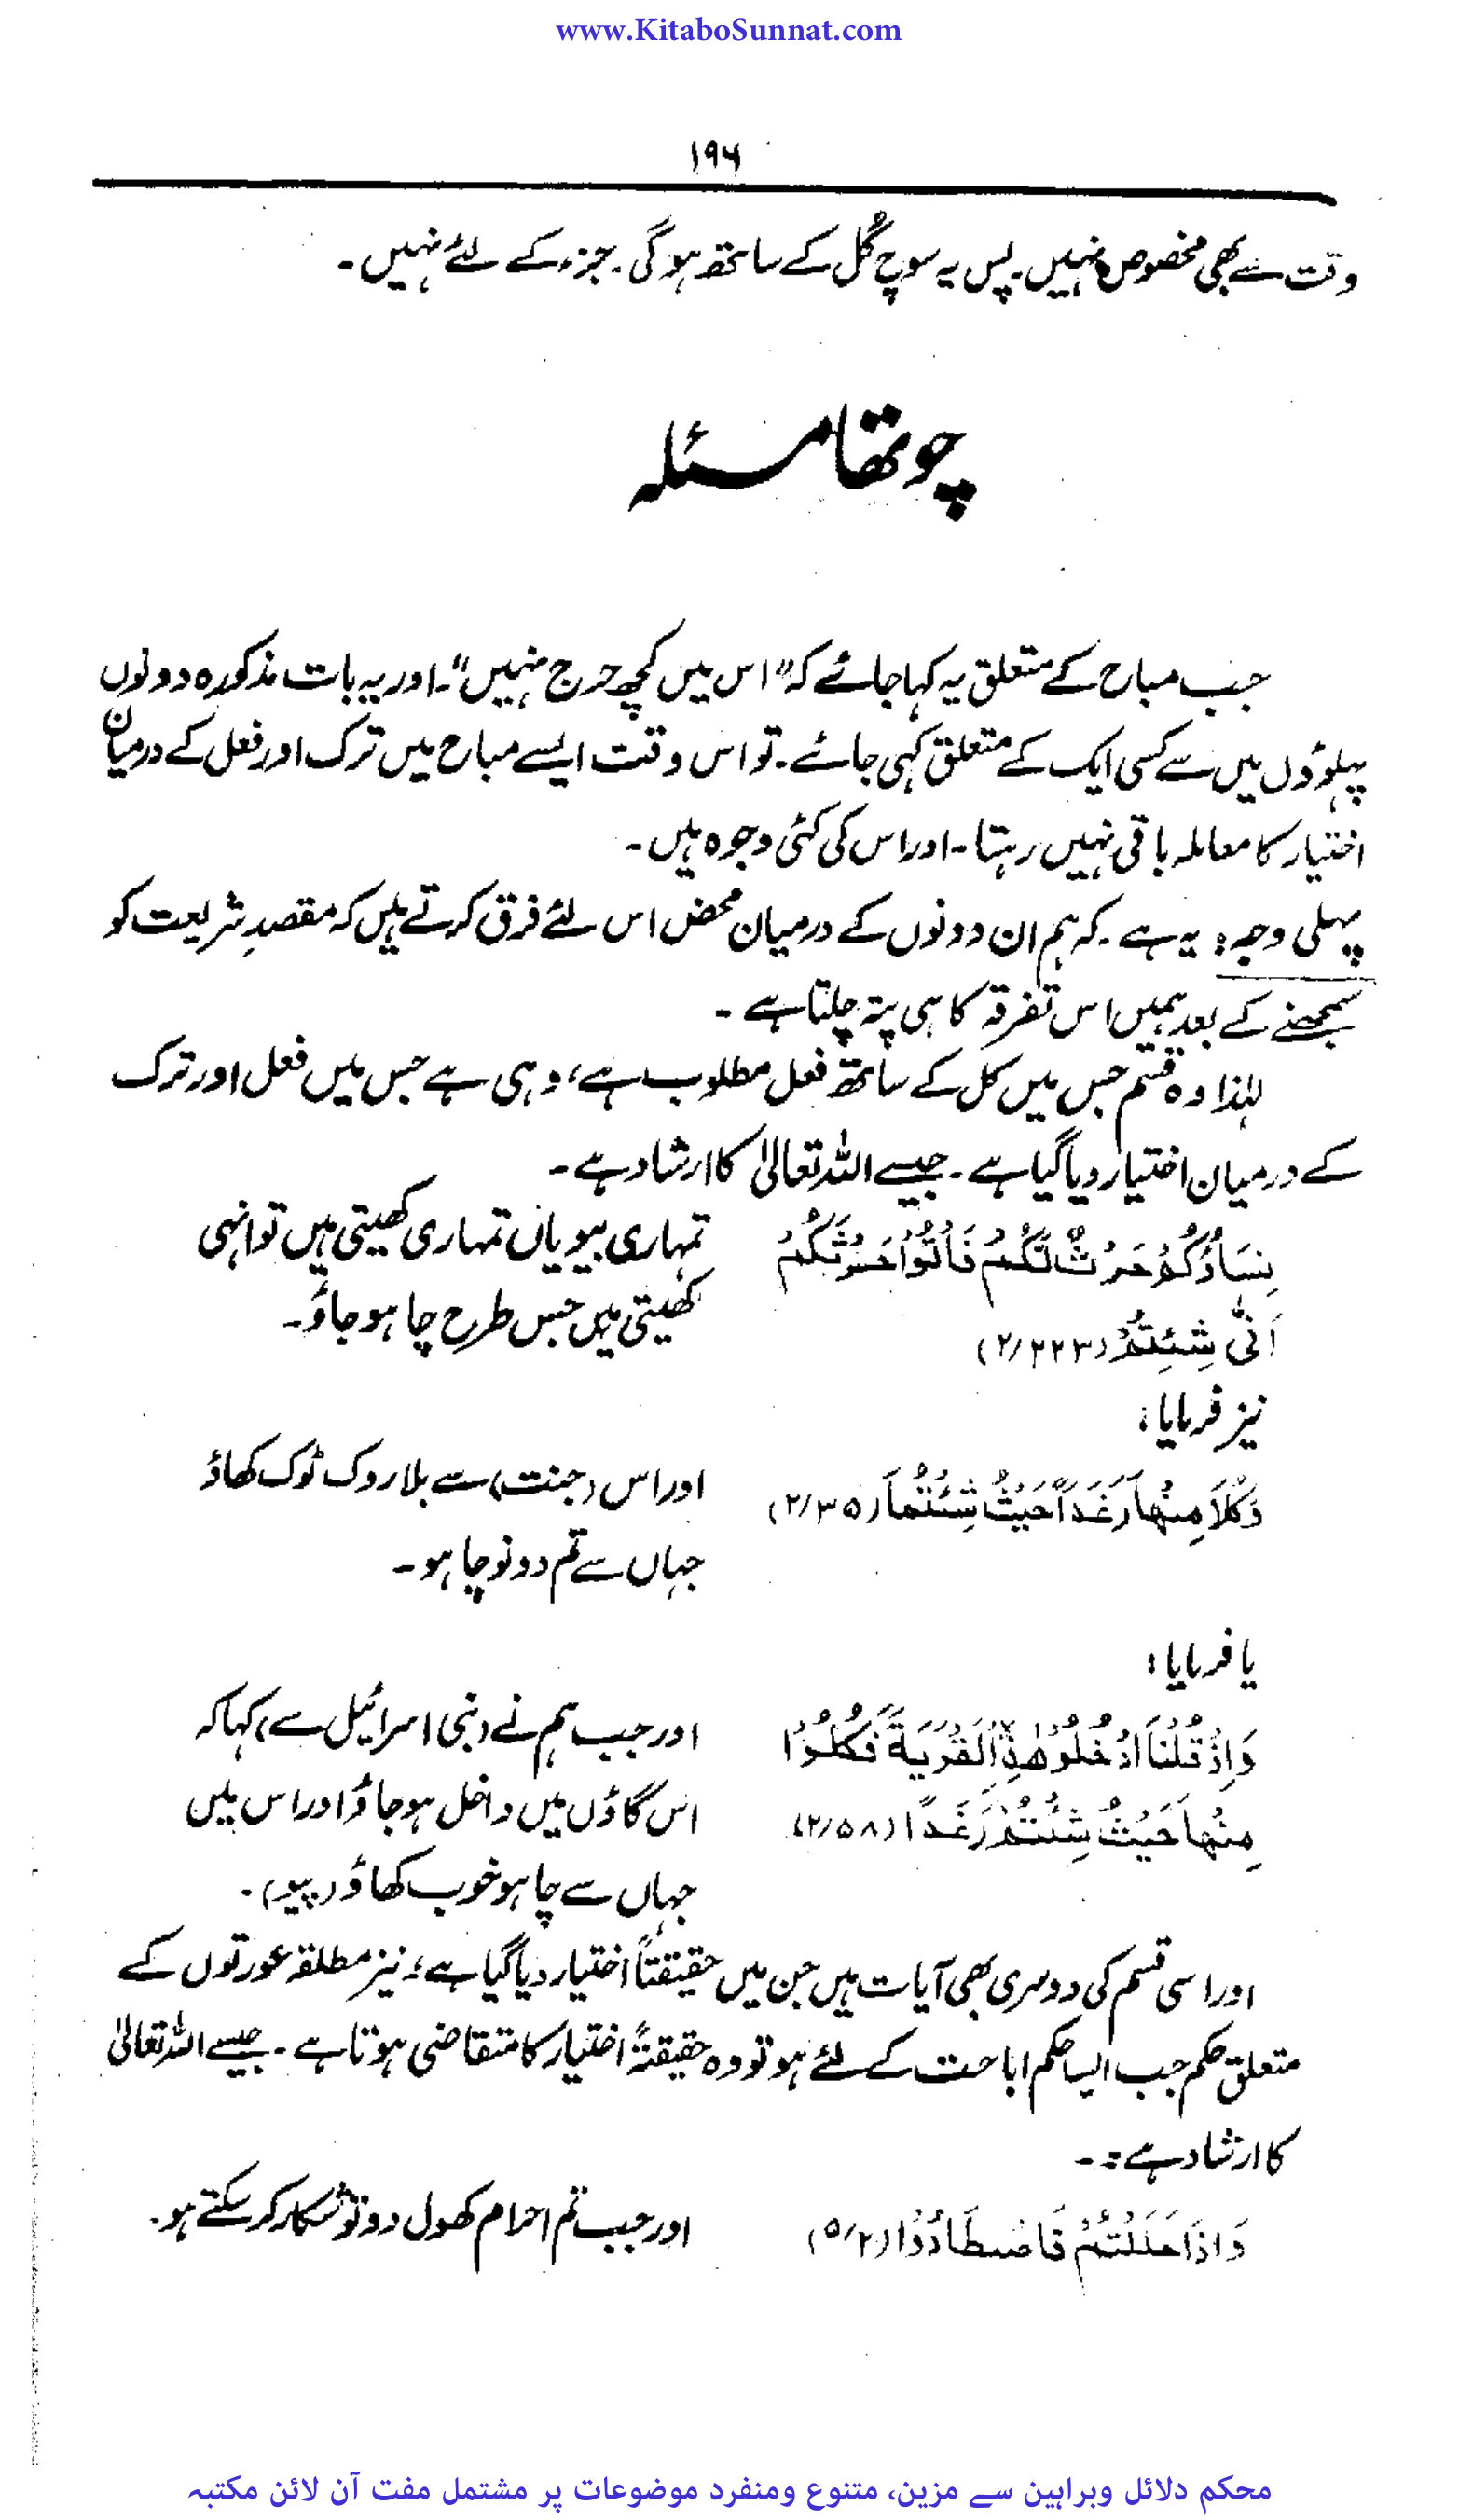 www.KitaboSunnat.com
۱۹۶
وقت سے بھی مخصوص نہیں۔ پس یہ سوچ کُل کے ساتھ ہوگی۔ جزء کے لئے نہیں۔
چوتھا مسئلہ
جب مباح کے متعلق یہ کہا جائے کہ "اس میں کچھ حرج نہیں"۔ اور یہ بات مذکورہ دونوں
پہلوؤں میں سے کسی ایک کے متعلق کہی جائے۔ تو اس وقت ایسے مباح میں ترک اور فعل کے درمیان
اختیار کا معاملہ باقی نہیں رہتا۔ اور اس کی کئی وجوہ ہیں۔
پہلی وجہ: یہ ہے۔ کہ ہم ان دونوں کے درمیان محض اس لئے فرق کرتے ہیں کہ مقصدِ شریعت کو
سمجھنے کے بعد ہمیں اس تفرقہ کا ہی پتہ چلتا ہے۔
لہٰذا وہ قسم جس میں کل کے ساتھ فعل مطلوب ہے، وہی ہے جس میں فعل اور ترک
کے درمیان اختیار دیا گیا ہے۔ جیسے اللہ تعالیٰ کا ارشاد ہے۔
نِسَاؤُكُمْ حَرْثٌ لَّكُمْ فَأْتُوْا حَرْثَكُمْ
اَنّٰى شِئْتُمْ (۲/۲۲۳)
تمہاری بیویاں تمہاری کھیتی ہیں تو انہی
کھیتی میں جس طرح چاہو جاؤ۔
نیز فرمایا:
وَكُلَا مِنْهَا رَغَدًا حَيْثُ شِئْتُمَا (۲/۳۵)
اور اس (جنت) سے بلا روک ٹوک کھاؤ
جہاں سے تم دونو چاہو۔
یا فرمایا:
وَاِذْ قُلْنَا ادْخُلُوْا هٰذِهِ الْقَرْيَةَ فَكُلُوْا
مِنْهَا حَيْثُ شِئْتُمْ رَغَدًا (۲/۵۸)
اور جب ہم نے (بنی اسرائیل سے) کہا کہ
اس گاؤں میں داخل ہو جاؤ اور اس میں
جہاں سے چاہو خوب کھاؤ (پیو)۔
اور اسی قسم کی دوسری بھی آیات ہیں جن میں حقیقتاً اختیار دیا گیا ہے؛ نیز مطلقہ عورتوں کے
متعلق حکم جب ایسا حکم اباحت کے لئے ہو تو وہ حقیقۃً اختیار کا متقاضی ہوتا ہے۔ جیسے اللہ تعالیٰ
کا ارشاد ہے:۔
وَاِذَا حَلَلْتُمْ فَاصْطَادُوْا (۵/۲)
اور جب تم احرام کھول دو تو شکار کر سکتے ہو۔
محکم دلائل وبراہین سے مزین، متنوع ومنفرد موضوعات پر مشتمل مفت آن لائن مکتبہ